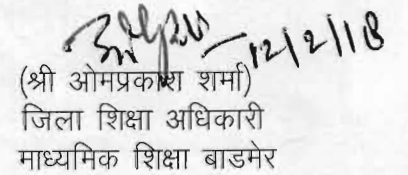 12/2/18
(श्री ओमप्रकाश शर्मा)
जिला शिक्षा अधिकारी
माध्यमिक शिक्षा बाडमेर